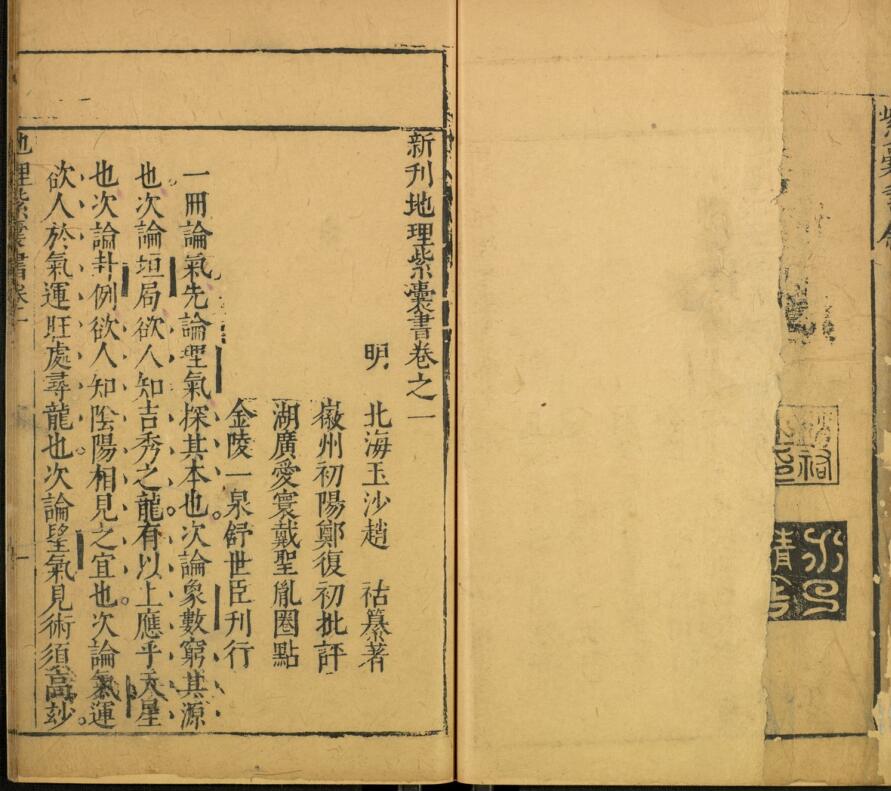 新刊地理紫囊書卷之一
明 北海玉沙趙 祜纂著
徽州初陽鄭復初批評
湖廣愛寰戴聖胤圈點
金陵一泉舒世臣刊行
一冊論氣先論理氣探其本也次論象數窮其源
也次論垣局欲人知吉秀之龍有以上應乎天星
也次論卦例欲人知陰陽相見之宜也次論氣運
欲人於氣運旺處尋龍也次論望氣見術須高玅
地理紫囊書卷一
一